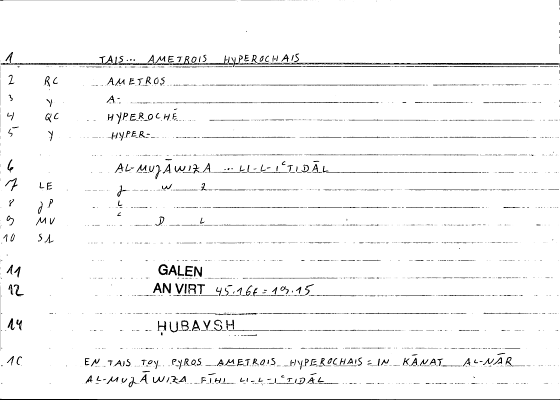 1 TAIS... AMETROIS HYPEROCHAIS
2 RC AMETROS
3 Y A-
4 QC HYPEROCHĒ
5 Y HYPER-
6 AL-MUJĀWIZA ... LI-L-IʿTIDĀL
7 LE J W Z
8 JP L
9 MV ʿ D L
10 SL
11 GALEN
12 AN VIRT 45.16F = 19.15
14 ḤUBAYSH
1C EN TAIS TOY PYROS AMETROIS HYPEROCHAIS = IN KĀNAT AL-NĀR
AL-MUJĀWIZA FĪHI LI-L-IʿTIDĀL